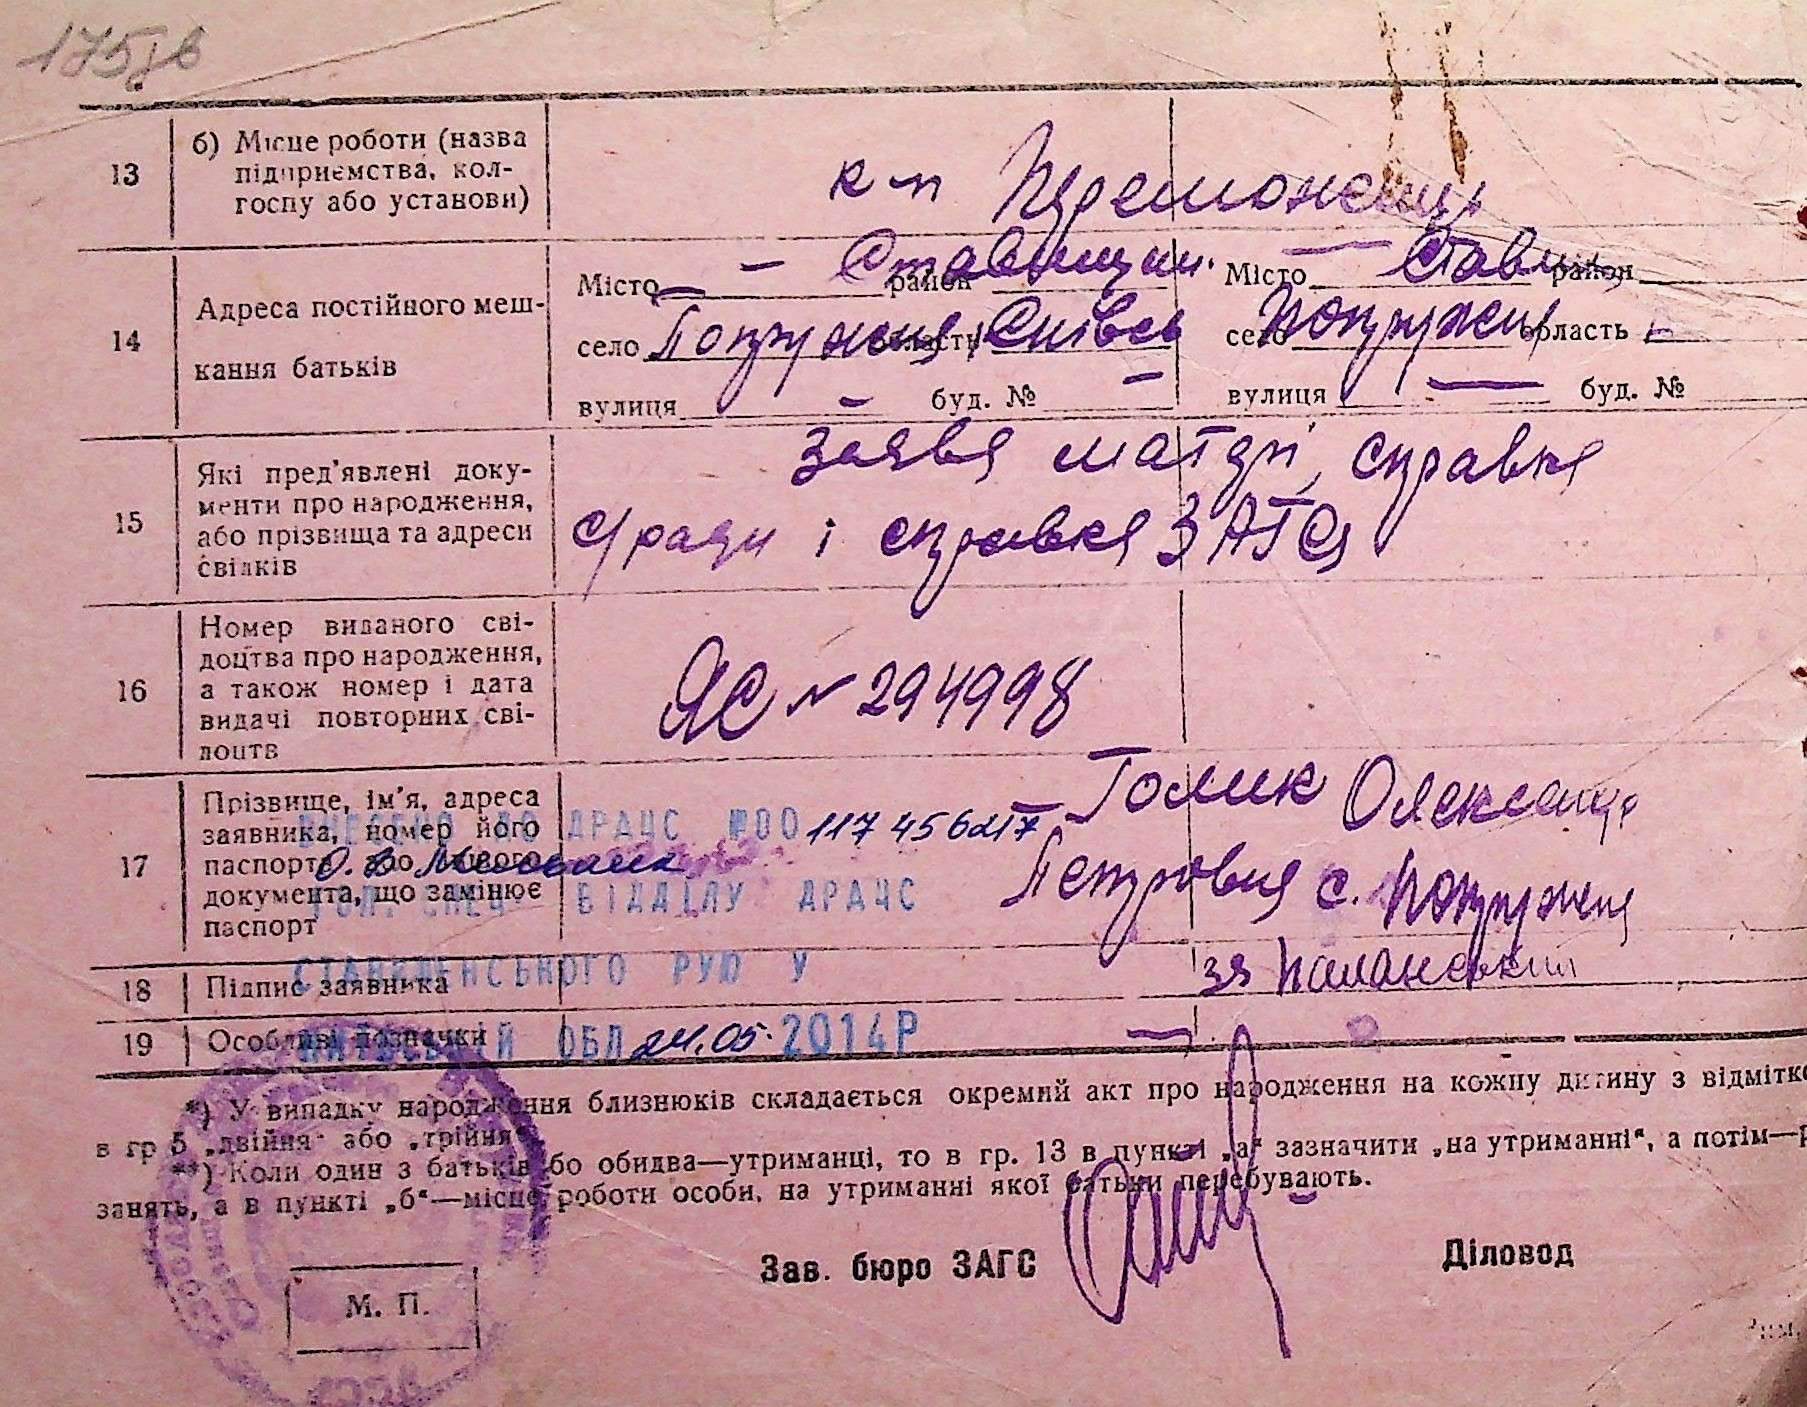 175
13 б) Місце роботи (назва
підприємства, кол-
госпу або установи)
к-п Переможець
14 Адреса постійного меш-
кання батьків
Місто — район Ставищан. Місто — район Ставищ
село Попружна область Київсь село Попружна область —
вулиця — буд. № — вулиця — буд. №
15 Які пред'явлені доку-
менти про народження,
або прізвища та адреси
свідків
Заява матері, справка
с/ради і справка ЗАГСа
16 Номер виданого сві-
доцтва про народження,
а також номер і дата
видачі повторних сві-
доцтв
ЯС № 294998
17 Прізвище, ім'я, адреса
заявника, номер його
паспорта або іншого
документа, що замінює
паспорт
Голик Олександра
Петровна с. Попружна
ВНЕСЕНО ДО ДРАЦС №00 117456217
ГОЛ. СПЕЦ ВІДДІЛУ ДРАЦС
СТАВИЩЕНСЬКОГО РУЮ У
КИЇВСЬКІЙ ОБЛ 24.05.2014Р
18 Підпис заявника
за
19 Особливі позначки —
*) У випадку народження близнюків складається окремий акт про народження на кожну дитину з відмітко
в гр 5 „двійня" або „трійня".
**) Коли один з батьків або обидва—утриманці, то в гр. 13 в пункті „а" зазначити „на утриманні", а потім—р
занять, а в пункті „б"—місце роботи особи, на утриманні якої батьки перебувають.
Зав. бюро ЗАГС Діловод
М. П.